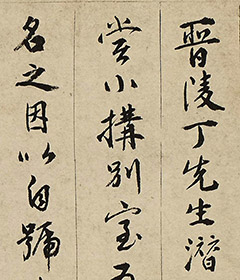 晋陵丁先生潛
嘗小搆別室
名之因以自號